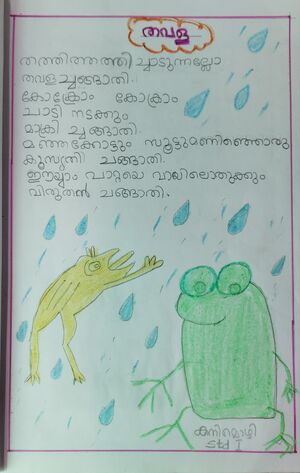 തവള
തത്തിത്തത്തി ച്ചാടുന്നല്ലോ
തവളച്ചങ്ങാതി.
കോക്രോം കോക്രാം
ചാട്ടി നടക്കും
മാക്രി ച്ചങ്ങാതി.
മഞ്ഞക്കോട്ടും സൂട്ടുമണിഞ്ഞൊരു
കുസൃതി ചങ്ങാതി.
ഈയ്യാം പാറ്റയെ വായിലൊതുക്കും
വിരുതൻ ചങ്ങാതി.
കനിമൊഴി
Std I